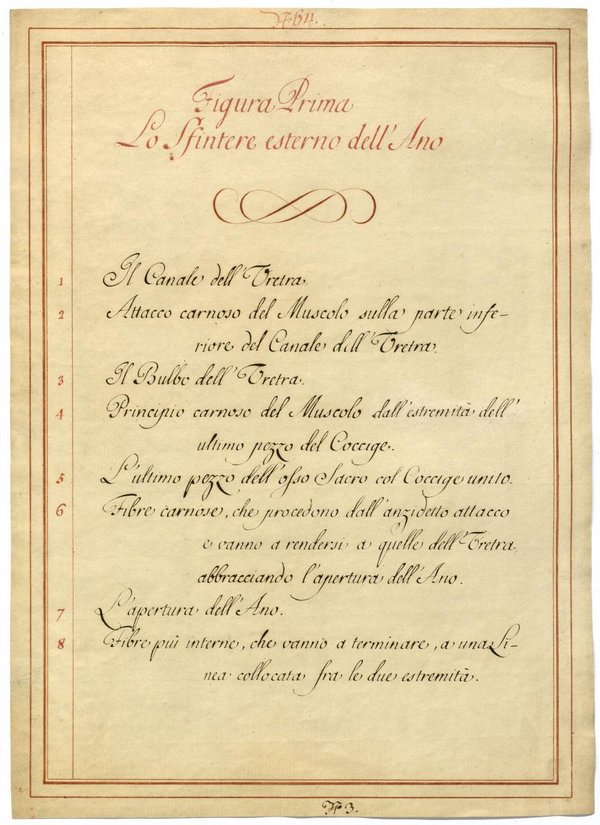 N.º 64.
Figura Prima
Lo Sfintere esterno dell' Ano
1 Il Canale dell' Vretra.
2 Attacco carnoso del Muscolo sulla parte infe-
riore del Canale dell' Vretra.
3 Il Bulbo dell' Vretra.
4 Principio carnoso del Muscolo dall'estremità dell'
ultimo pezzo del Coccige.
5 L'ultimo pezzo dell'osso Sacro col Coccige unito.
6 Fibre carnose, che procedono dall'anzidetto attacco
e vanno a rendersi a quelle dell' Vretra,
abbracciando l'apertura dell' Ano.
7 L'apertura dell' Ano.
8 Fibre più interne, che vanno a terminare, a una Li-
nea collocata fra le due estremità.
N.º 3.